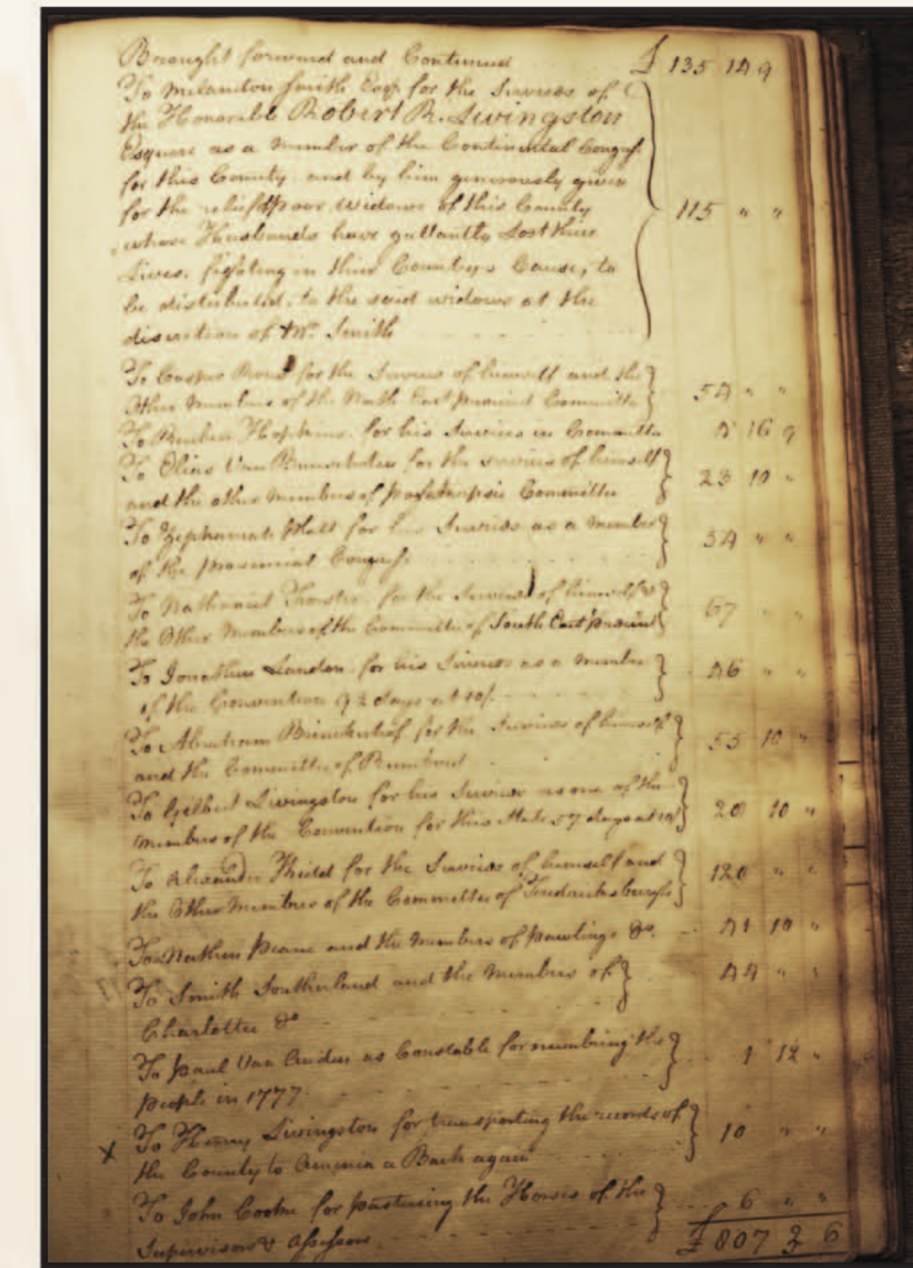 Brought forward and Continued £ 135 14 9
To Melancton Smith Esqr. for the Services of
the Honorable Robert R. Livingston
Esquire as a member of the Continental Congress
for this County and by him generously given
for the relief of poor widows of this County
whose Husbands have gallantly Lost their
Lives, fighting in their Countrys Cause, to 115 " "
be distributed, to the said widows at the
discretion of Mr. Smith
To for the Services of himself and the
Other Members of the North East precinct Committee 54 " "
To Reuben Hopkins for his Services in Committee 16 9
To Elias Van Bunschoten for the services of himself
and the other members of Committee 23 10 "
To Zephaniah Platt for his Services as a member
of the provincial Congress 34 " "
To Nathaniel for the Services of himself &
the Other Members of the Committee of South East precinct 67 " "
To Jonathan Landon for his Services as a member
of the Convention 92 days at 10/. 46 " "
To Abraham Brinckerhof for the Services of himself
and the Committee of Rumbout 55 10 "
To Gilbert Livingston for his Services as one of the
members of the Convention for this State 57 days at 10/ 10 "
To Alexander Kidd for the Services of himself and
the Other Members of the Committee of Fredericksburgh 120 " "
To Nathan Pearce and the members of pawlings &c. 41 10 "
To Smith Southerland and the members of 44 " "
Charlotte &c
To paul Van as Constable for numbering the 1 12 "
people in 1777
x To Henry Livingston for transporting the records of 10 " "
the County to Amenia & Back again
To John Cooke for pastureing the Horses of the 6 " "
Supervisors & Assessors £ 807 6